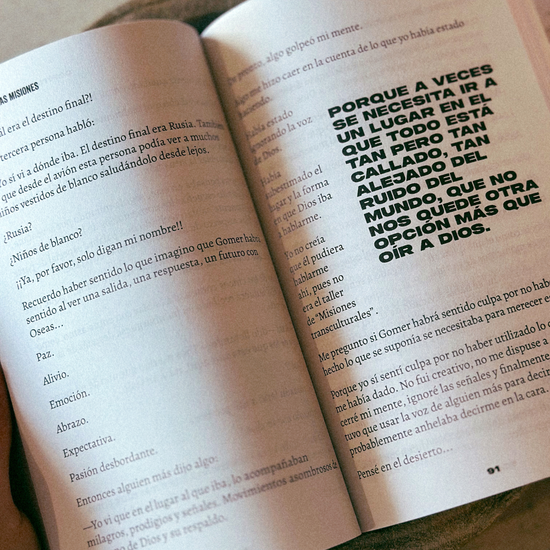 AS MISIONES
ál era el destino final?!
tercera persona habló:
Yo sí vi a dónde iba. El destino final era Rusia. También
que desde el avión esta persona podía ver a muchos
niños vestidos de blanco saludándolo desde lejos.
¿Rusia?
¿Niños de blanco?
¡¡Ya, por favor, solo digan mi nombre!!
Recuerdo haber sentido lo que imagino que Gomer habrá
sentido al ver una salida, una respuesta, un futuro con
Oseas...
Paz.
Alivio.
Emoción.
Abrazo.
Expectativa.
Pasión desbordante.
Entonces alguien más dijo algo:
—Yo vi que en el lugar al que iba, lo acompañaban
milagros, prodigios y señales. Movimientos asombrosos de
de Dios y su respaldo.
De pronto, algo golpeó mi mente.
Algo me hizo caer en la cuenta de lo que yo había estado
haciendo.
Había estado
ignorando la voz
de Dios.
Había
subestimado el
lugar y la forma
en que Dios iba
a hablarme.
Yo no creía
que él pudiera
hablarme
ahí, pues no
era el taller
de "Misiones
transculturales".
PORQUE A VECES
SE NECESITA IR A
UN LUGAR EN EL
QUE TODO ESTÁ
TAN PERO TAN
CALLADO, TAN
ALEJADO DEL
RUIDO DEL
MUNDO, QUE NO
NOS QUEDE OTRA
OPCIÓN MÁS QUE
OÍR A DIOS.
Me pregunto si Gomer habrá sentido culpa por no hab
hecho lo que se suponía se necesitaba para merecer e
Porque yo sí sentí culpa por no haber utilizado lo
me había dado. No fui creativo, no me dispuse a
cerré mi mente, ignoré las señales y finalmente
tuvo que usar la voz de alguien más para decir
probablemente anhelaba decirme en la cara.
Pensé en el desierto...
91